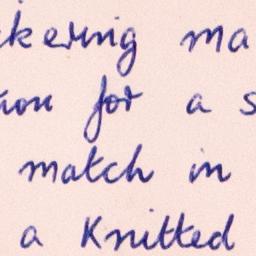 kering ma
for a s
match in
a Knitted